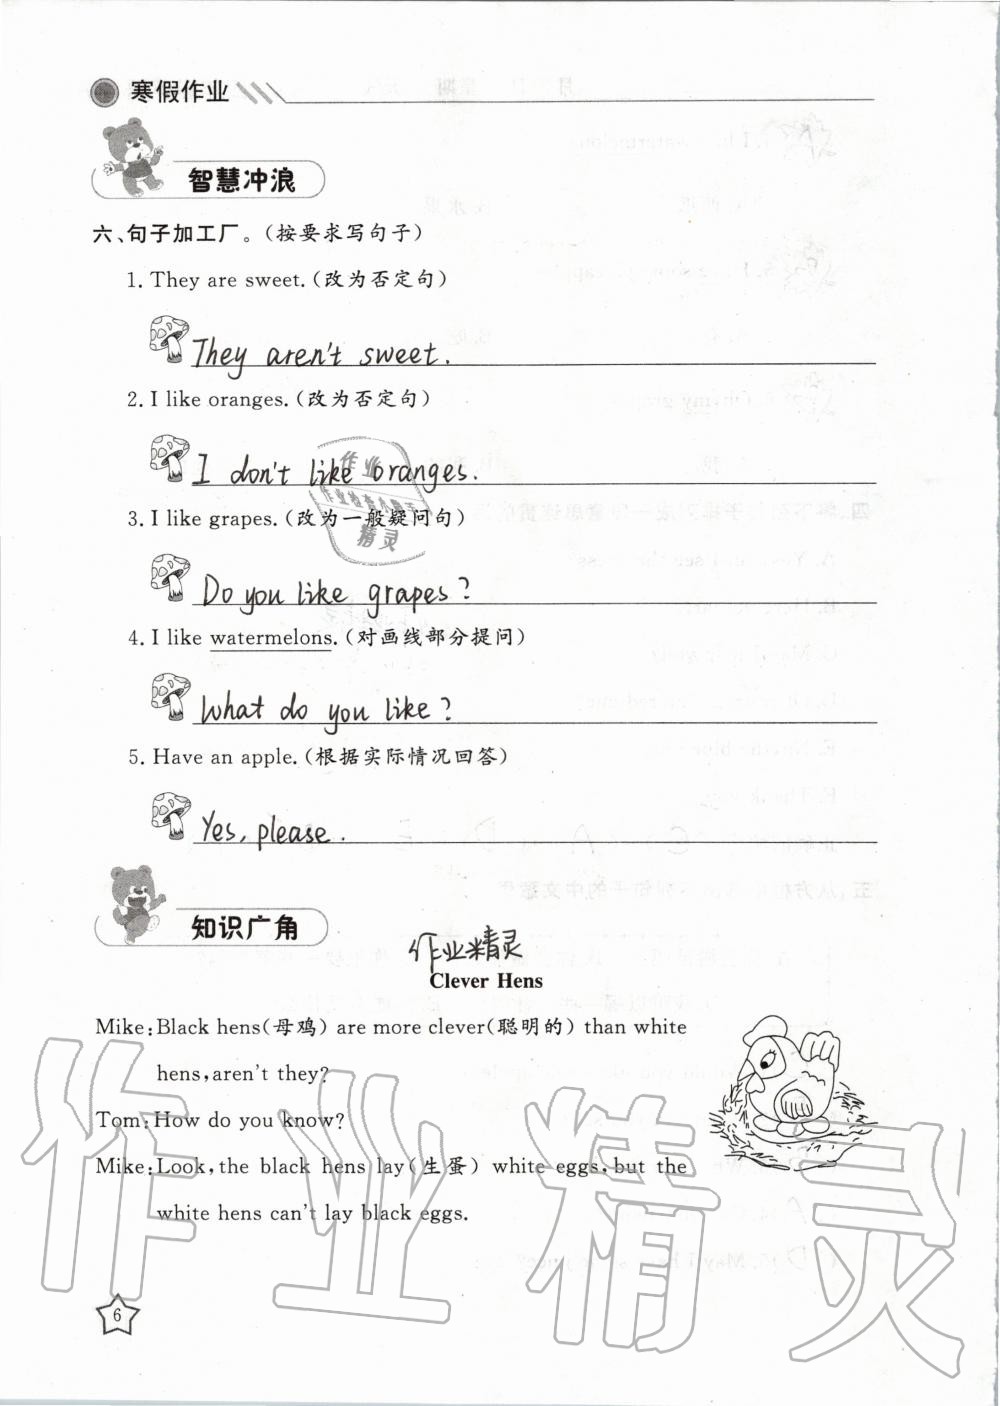 寒假作业
智慧冲浪
六、句子加工厂。(按要求写句子)
1. They are sweet. (改为否定句)
They aren't sweet.
2. I like oranges. (改为否定句)
I don't like oranges.
3. I like grapes. (改为一般疑问句)
Do you like grapes?
4. I like watermelons. (对画线部分提问)
What do you like?
5. Have an apple. (根据实际情况回答)
Yes, please.
知识广角
作业精灵
Clever Hens
Mike: Black hens(母鸡) are more clever(聪明的) than white
hens, aren't they?
Tom: How do you know?
Mike: Look, the black hens lay(生蛋) white eggs, but the
white hens can't lay black eggs.
6
作业精灵